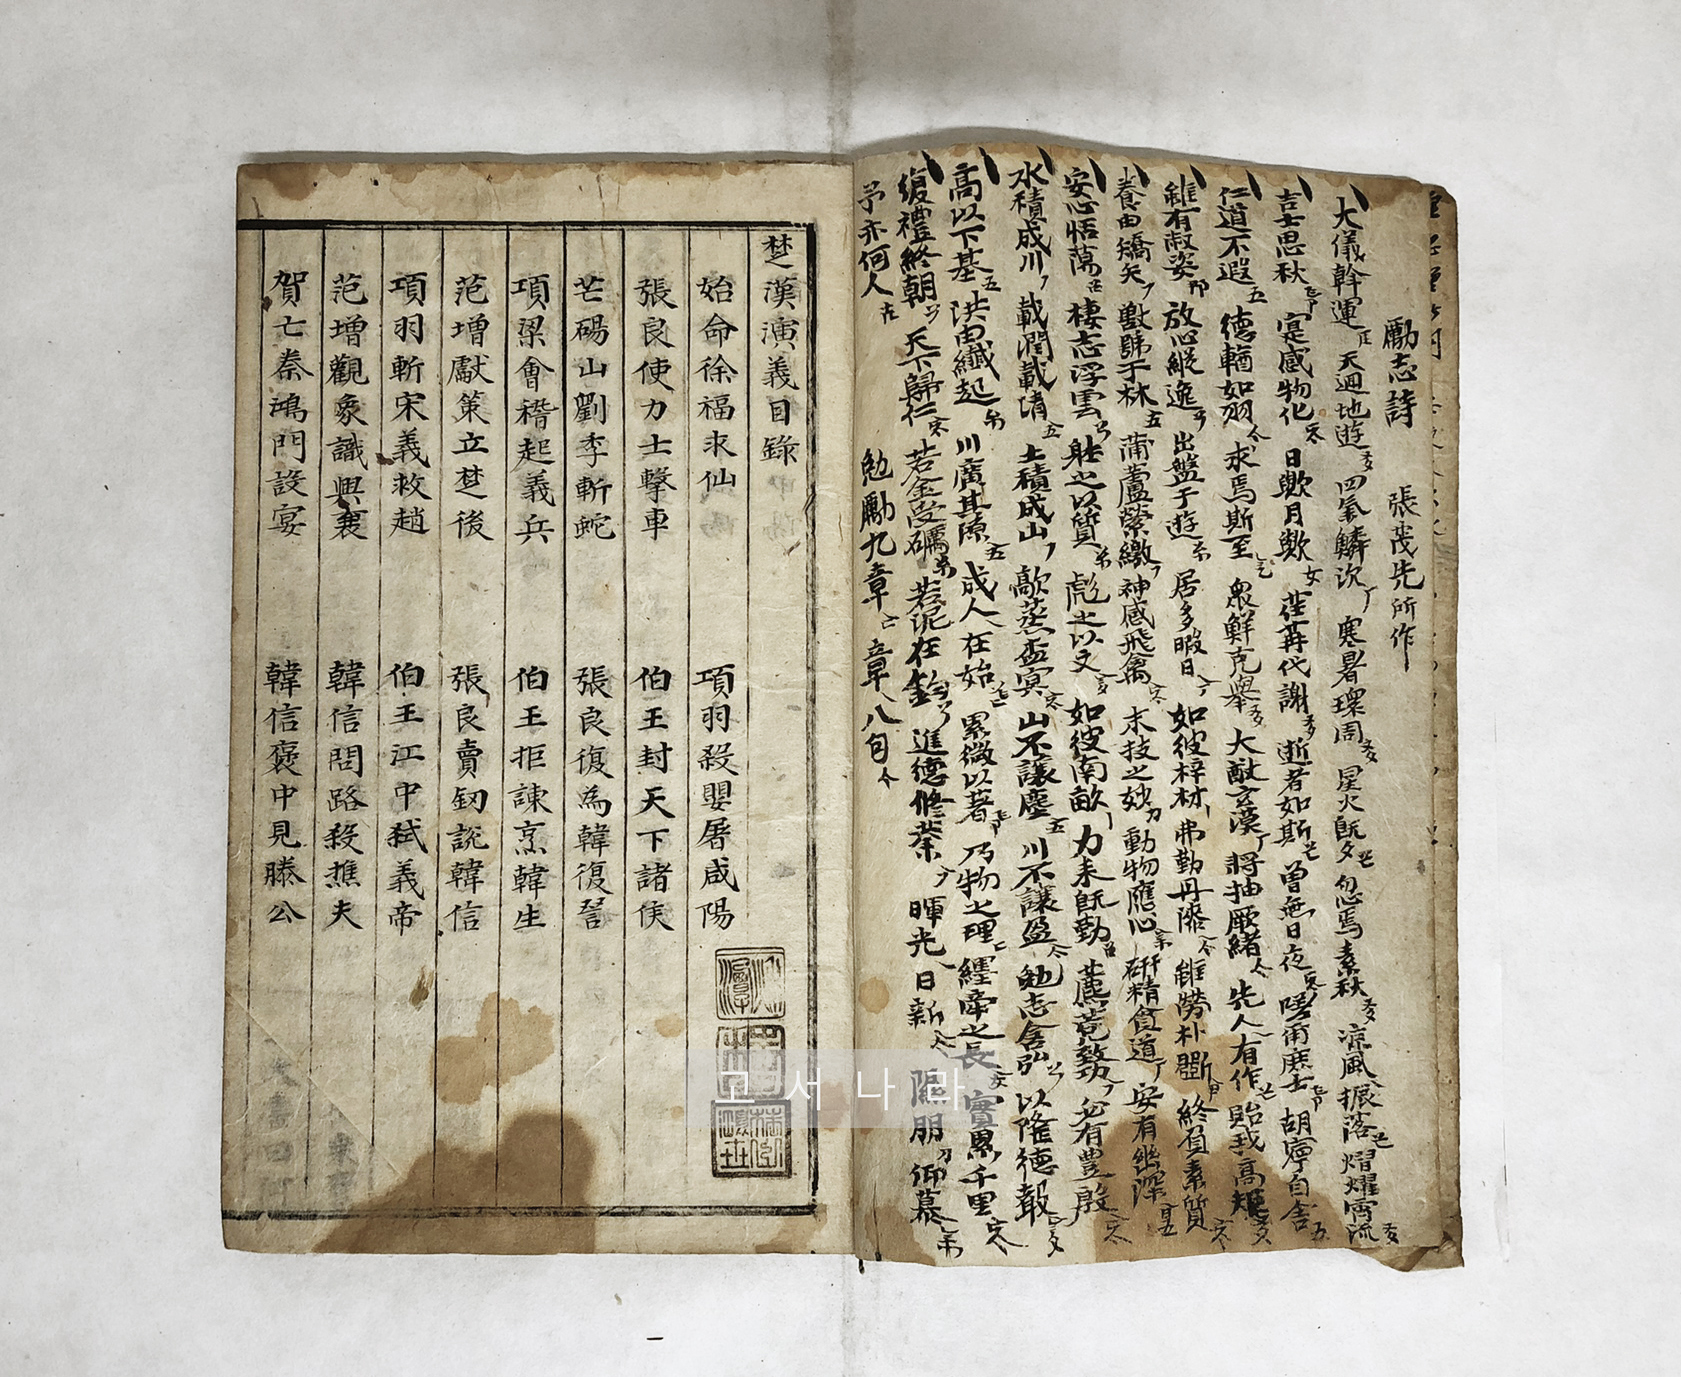 勵志詩 張茂先所作
大儀斡運 天迴地遊 四氣鱗次 寒暑環周 星火旣夕 忽焉素秋 凉風振落 熠燿宵流
吉士思秋 寔感物化 日歟月歟 荏苒代謝 逝者如斯 曾無日夜 嗟爾庶士 胡寧自舍
仁道不遐 德輶如羽 求焉斯至 衆鮮克擧 大猷玄漠 將抽厥緖 先人有作 貽我高矩
雖有淑姿 放心縱逸 出盤于遊 居多暇日 如彼梓材 弗勤丹漆 雖勞朴斲 終負素質
養由矯矢 獸號于林 蒲蘆縈繳 神感飛禽 末技之妙 動物應心 硏精耽道 安有幽深
安心恬蕩 棲志浮雲 軆之以質 彪之以文 如彼南畝 力耒旣勤 藨蓘致功 必有豊殷
水積成川 載瀾載淸 土積成山 歊蒸鬱冥 山不讓塵 川不讓盈 勉志含弘 以隆德聲
高以下基 洪由纖起 川廣其源 成人在始 累微以著 乃物之理 纆牽之長 實累千里
復禮終朝 天下歸仁 若金受礪 若泥在鈞 進德修業 暉光日新 隰朋仰慕
予亦何人 勉勵九章 章八句
楚漢演義目錄
始命徐福求仙 項羽殺嬰屠咸陽
張良使力士擊車 伯王封天下諸侯
芒碭山劉季斬蛇 張良復為韓復讐
項梁會稽起義兵 伯王拒諫烹韓生
范增獻策立楚後 張良賣釖說韓信
項羽斬宋義救趙 伯王江中弑義帝
范增觀象識興衰 韓信問路殺樵夫
賀亡秦鴻門設宴 韓信褒中見滕公
고서나라